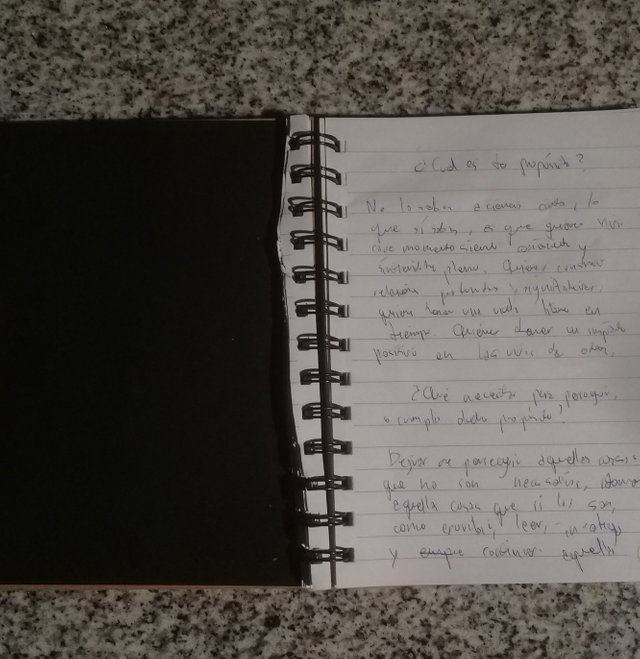 ¿Cuál es tu propósito?
No lo sabes a ciencia cierta, lo
que sí sabes, es que quieres vivir
cada momento siendo consciente y
plena. Quieres construir
relaciones profundas y significativas,
quieres tener una vida libre en
tiempo. Quieres tener un impacto
positivo en las vidas de otros.
¿Qué necesitas para perseguir,
o cumplir dicho propósito?
Dejar de perseguir aquellas cosas
que no son necesarias,
aquella cosas que sí lo son,
como escribir, leer,
y empre continuar aquella